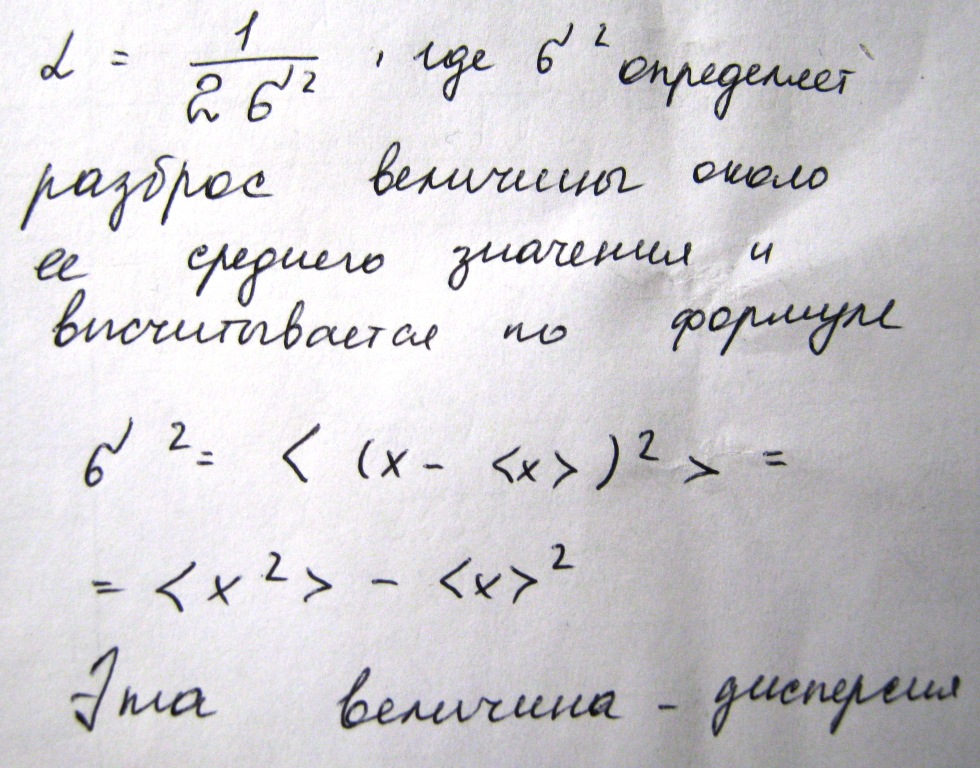 α = 1 / 2σ², где σ² определяет
разброс величины около
ее среднего значения и
высчитывается по формуле
σ² = < (x - <x>)² > =
= <x²> - <x>²
Эта величина - дисперсия